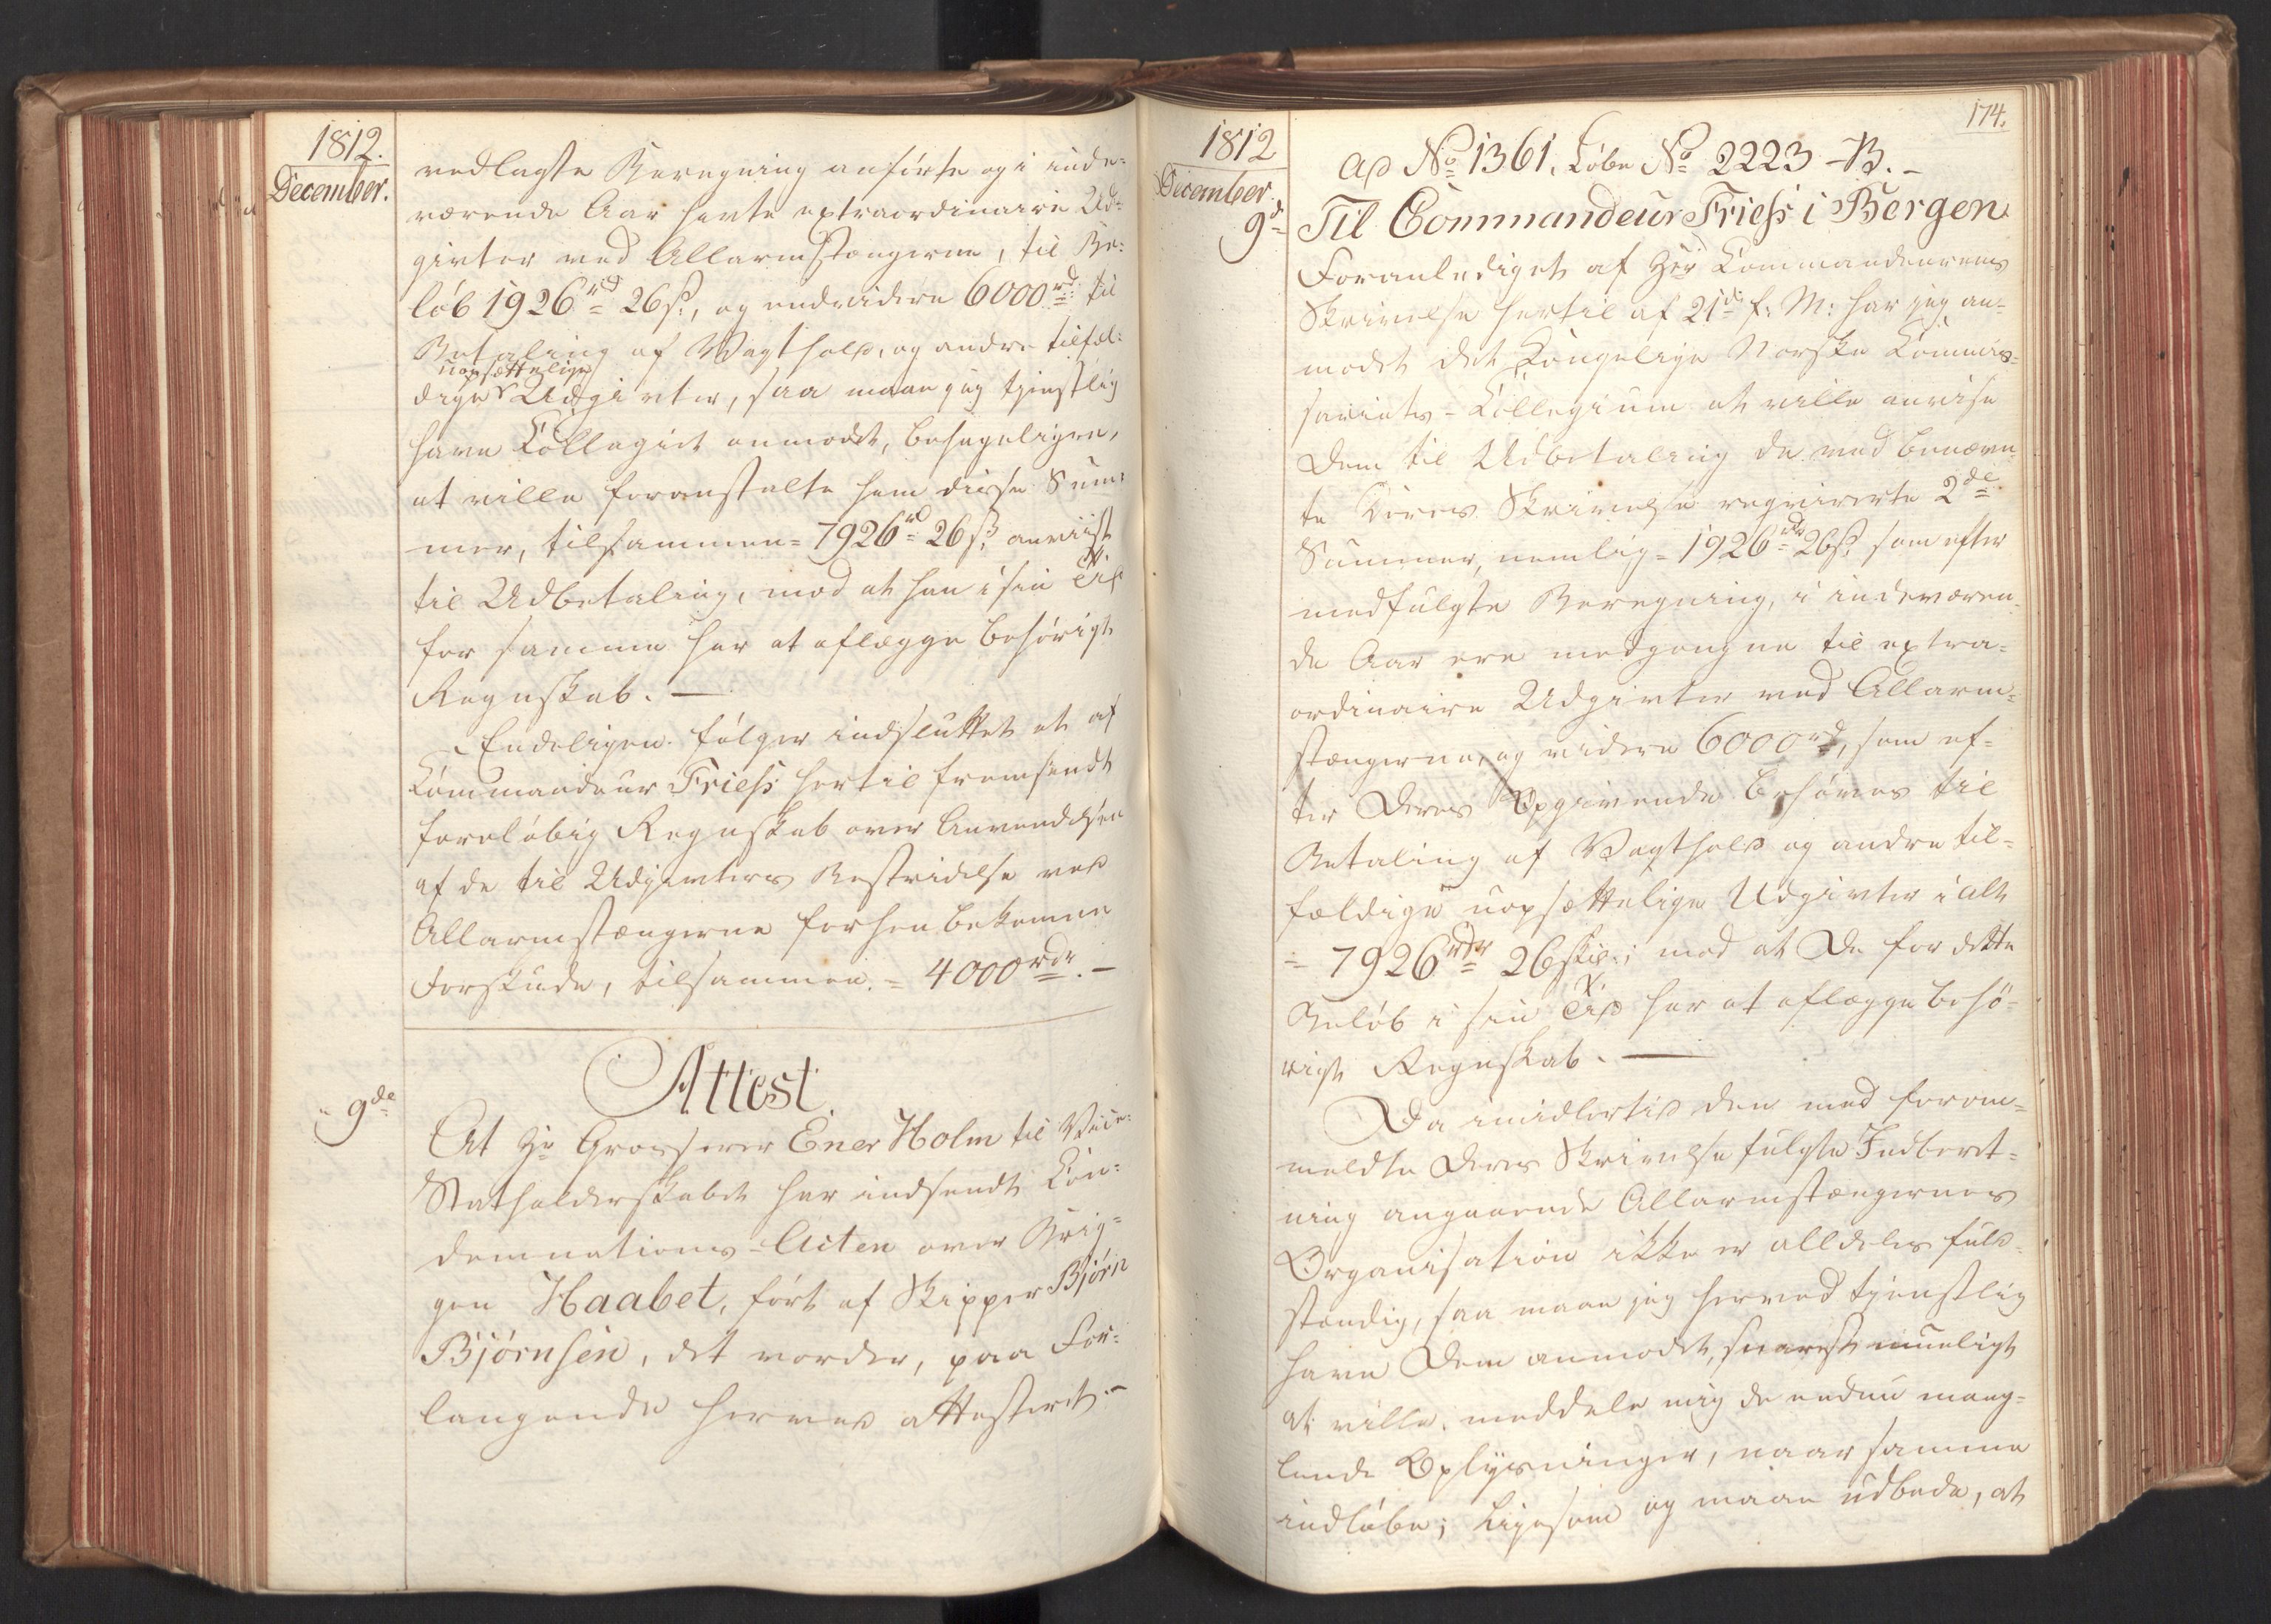 1812.
December.
vedlagte Beregning anførte og i inde-
værende Aar havte extraordinaire Ud-
givter ved Allarmstængerne, til Be-
løb 1926 rd 26 s., og endvidere 6000 rd. til
Betaling af Vagthold, og andre tilfæl-
uopsættelige
dige Udgivter, saa maae jeg tjenstlig
have Collegiet anmodet, behageligen,
at ville foranstalte ham disse Sum-
mer, tilsammen = 7926 rd 26 s. anviist
til Udbetaling, mod at han i sin Tid
for samme har at aflægge behørigt
Regnskab. —
Endeligen følger indsluttet et af
Commandeur Friess hertil fremsendt
foreløbig Regnskab over Anvendelsen
af de til Udgivters Bestridelse ved
Allarmstængerne forhen bekomne
Forskude, tilsammen = 4000 rdr. —
9de
Attest.
At Hr Grosserer Ener Holm til Vice-
Statholderskabet har indsendt Con-
demnations-Acten over Brig-
gen Haabet, ført af Skipper Bjørn
Bjørnsen, det vorder, paa For-
langende herved attesteret. —
174.
1812
December.
9d
ad No 1361. Løbe No 2223 - B. -
Til Commandeur Friess i Bergen
Foranlediget af Herr Commandeurens
Skrivelse hertil af 21de f: M: har jeg an-
modet det Kongelige Norske Commis-
sariats-Collegium at ville anvise
Dem til Udbetaling de ved benævn-
te Deres Skrivelse reqvirerte 2de
Summer, nemlig = 1926 rdr 26 s. som efter
medfulgte Beregning, i indeværen-
de Aar ere medgangne til extra-
ordinaire Udgivter ved Allarm-
stængerne, og videre 6000 rd, som ef-
ter Deres Opgivende behøves til
Betaling af Vagthold og andre til-
fældige uopsættelige Udgivter i alt
= 7926 rdr 26 skil.; mod at De for dette
Beløb i sin Tid har at aflægge behø-
rigt Regnskab. —
Da imidlertid den med forom-
meldte Deres Skrivelse fulgte Indberet-
ning angaaende Allarmstængernes
Organisation ikke er alldeles fuld-
stændig, saa maae jeg herved tjenstlig
have Dem anmodet, snarest mueligt
at ville meddele mig de endnu mang-
lende Oplysninger, naar samme
indløbe; ligesom og maae udbede, at